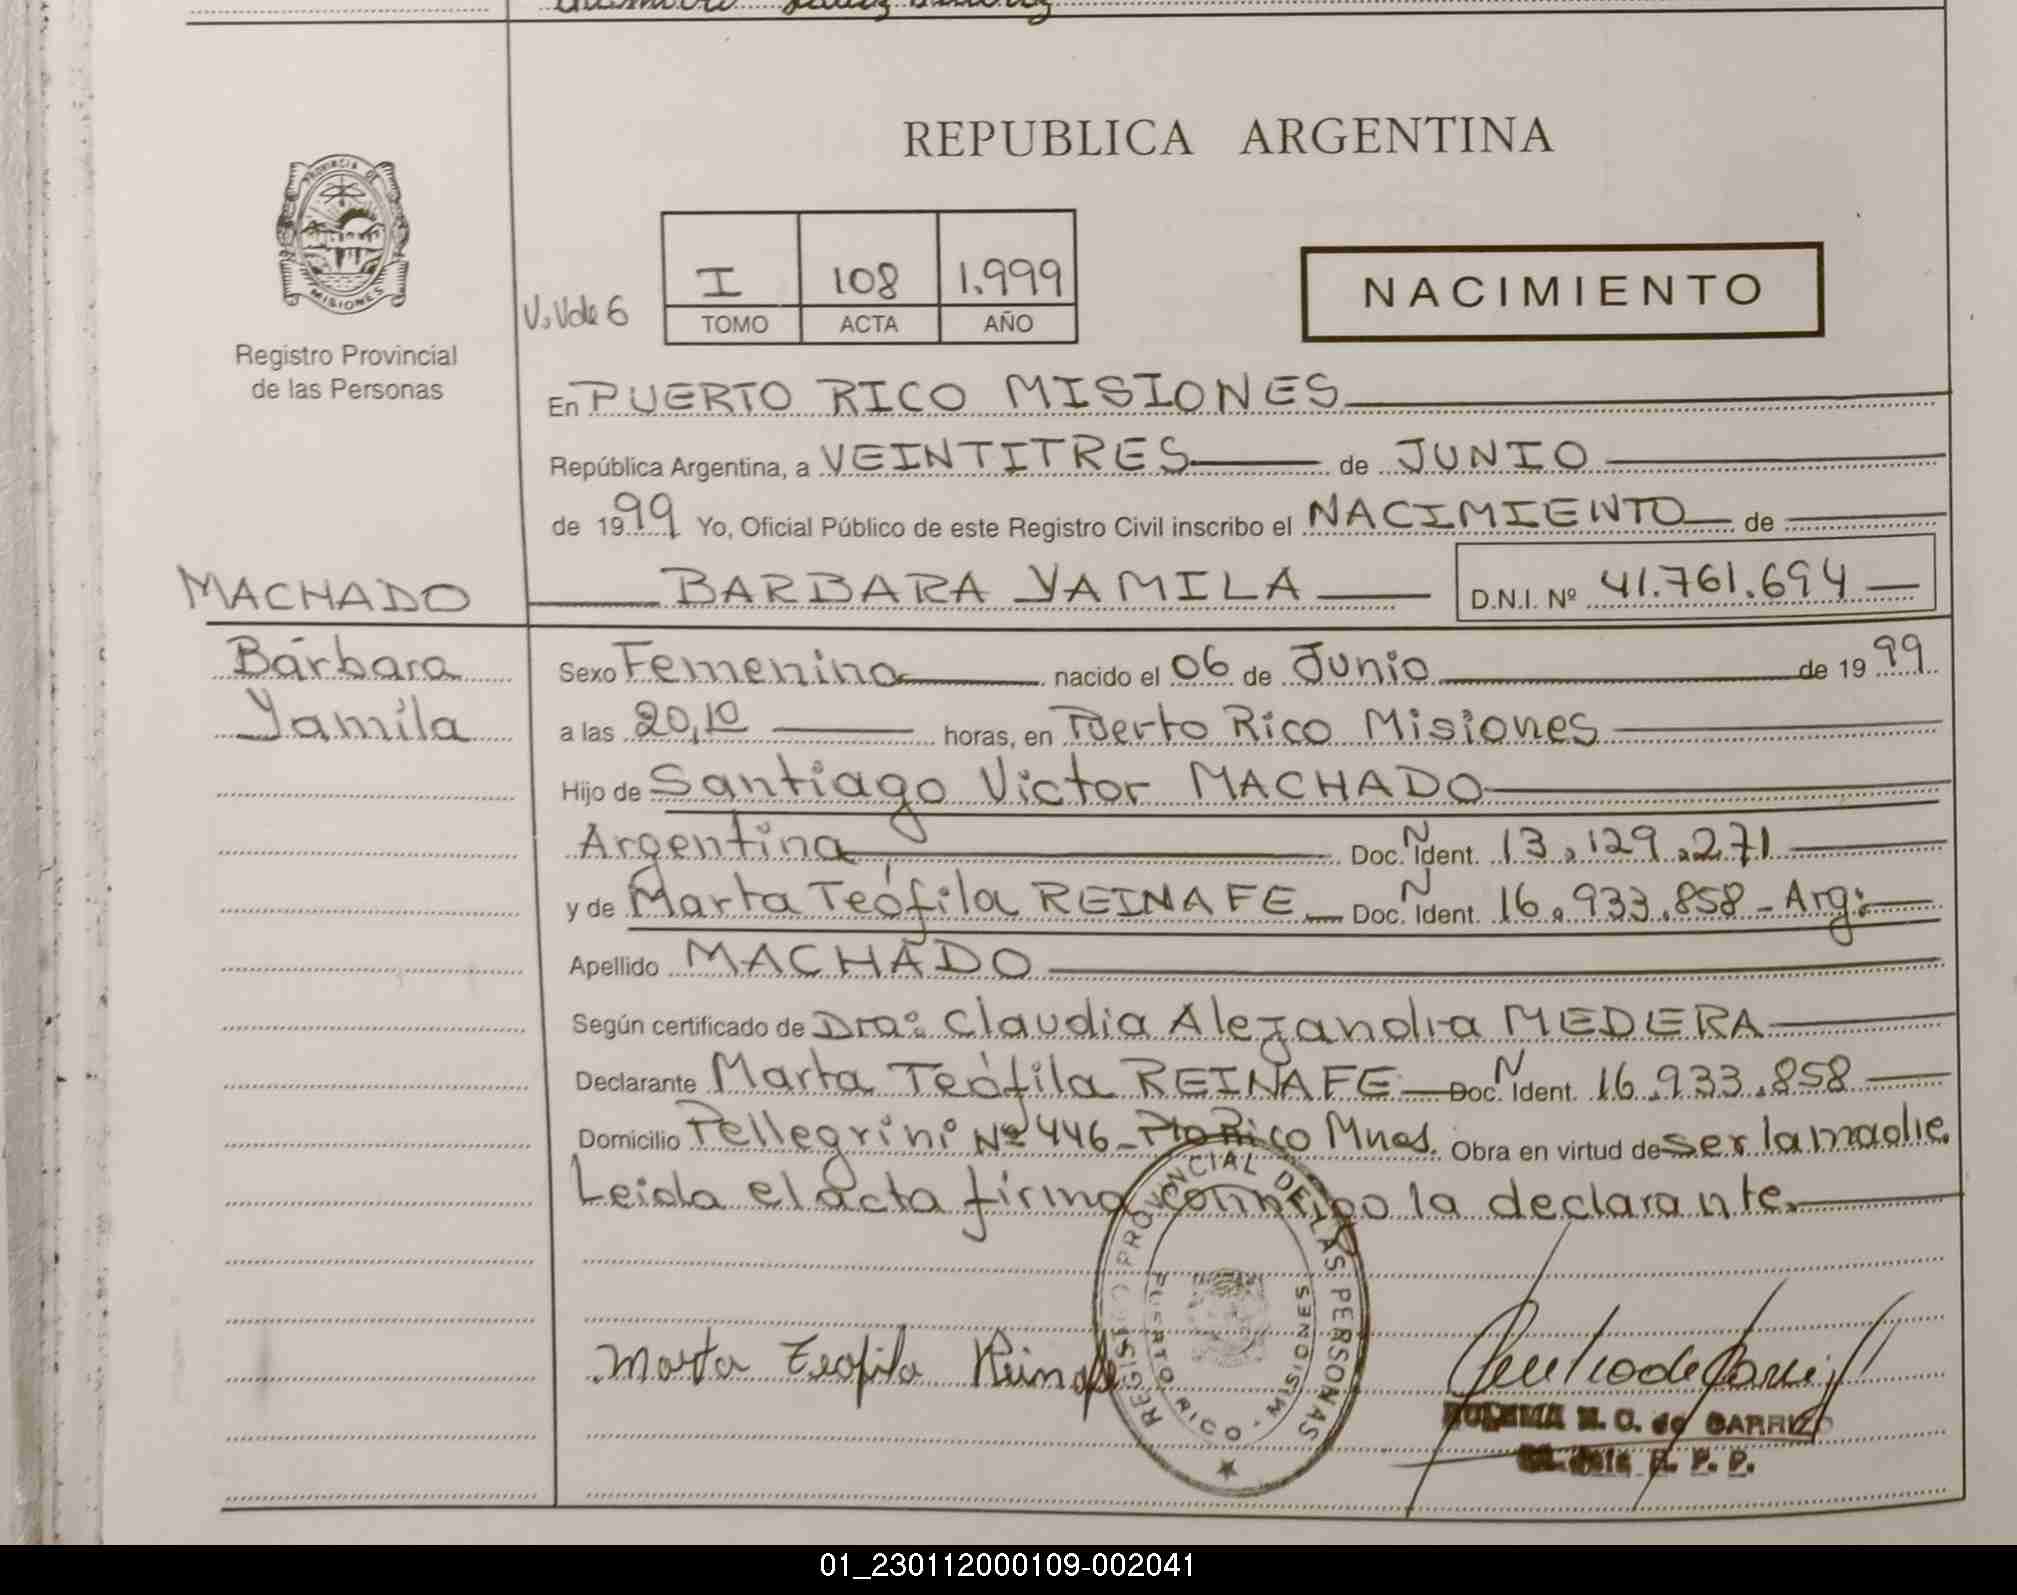 REPUBLICA ARGENTINA
PROVINCIA DE
MISIONES
Registro Provincial
de las Personas
I 108 1.999
TOMO ACTA AÑO
NACIMIENTO
En PUERTO RICO MISIONES
República Argentina, a VEINTITRES de JUNIO
de 1999 Yo, Oficial Público de este Registro Civil inscribo el NACIMIENTO de
MACHADO BARBARA YAMILA D.N.I. Nº 41.761.694
Bárbara
Yamila
Sexo Femenino nacido el 06 de Junio de 1999
a las 20,10 horas, en Puerto Rico Misiones
Hijo de Santiago Victor MACHADO
Argentina Doc. N Ident. 13.129.271
y de Marta Teófila REINAFE Doc. N Ident. 16.933.858 - Arg:
Apellido MACHADO
Según certificado de Dra: Claudia Alejandra MEDERA
Declarante Marta Teófila REINAFE Doc. N Ident. 16.933.858
Domicilio Pellegrini Nº 446 - Pto Rico Mnes. Obra en virtud de ser la madre.
Leida el acta firma conmigo la declarante.
Marta Teofila Reinafe
REGISTRO PROVINCIAL DE LAS PERSONAS
PUERTO RICO - MISIONES
N. C. de CARRIZO
R. P. P.
01_230112000109-002041